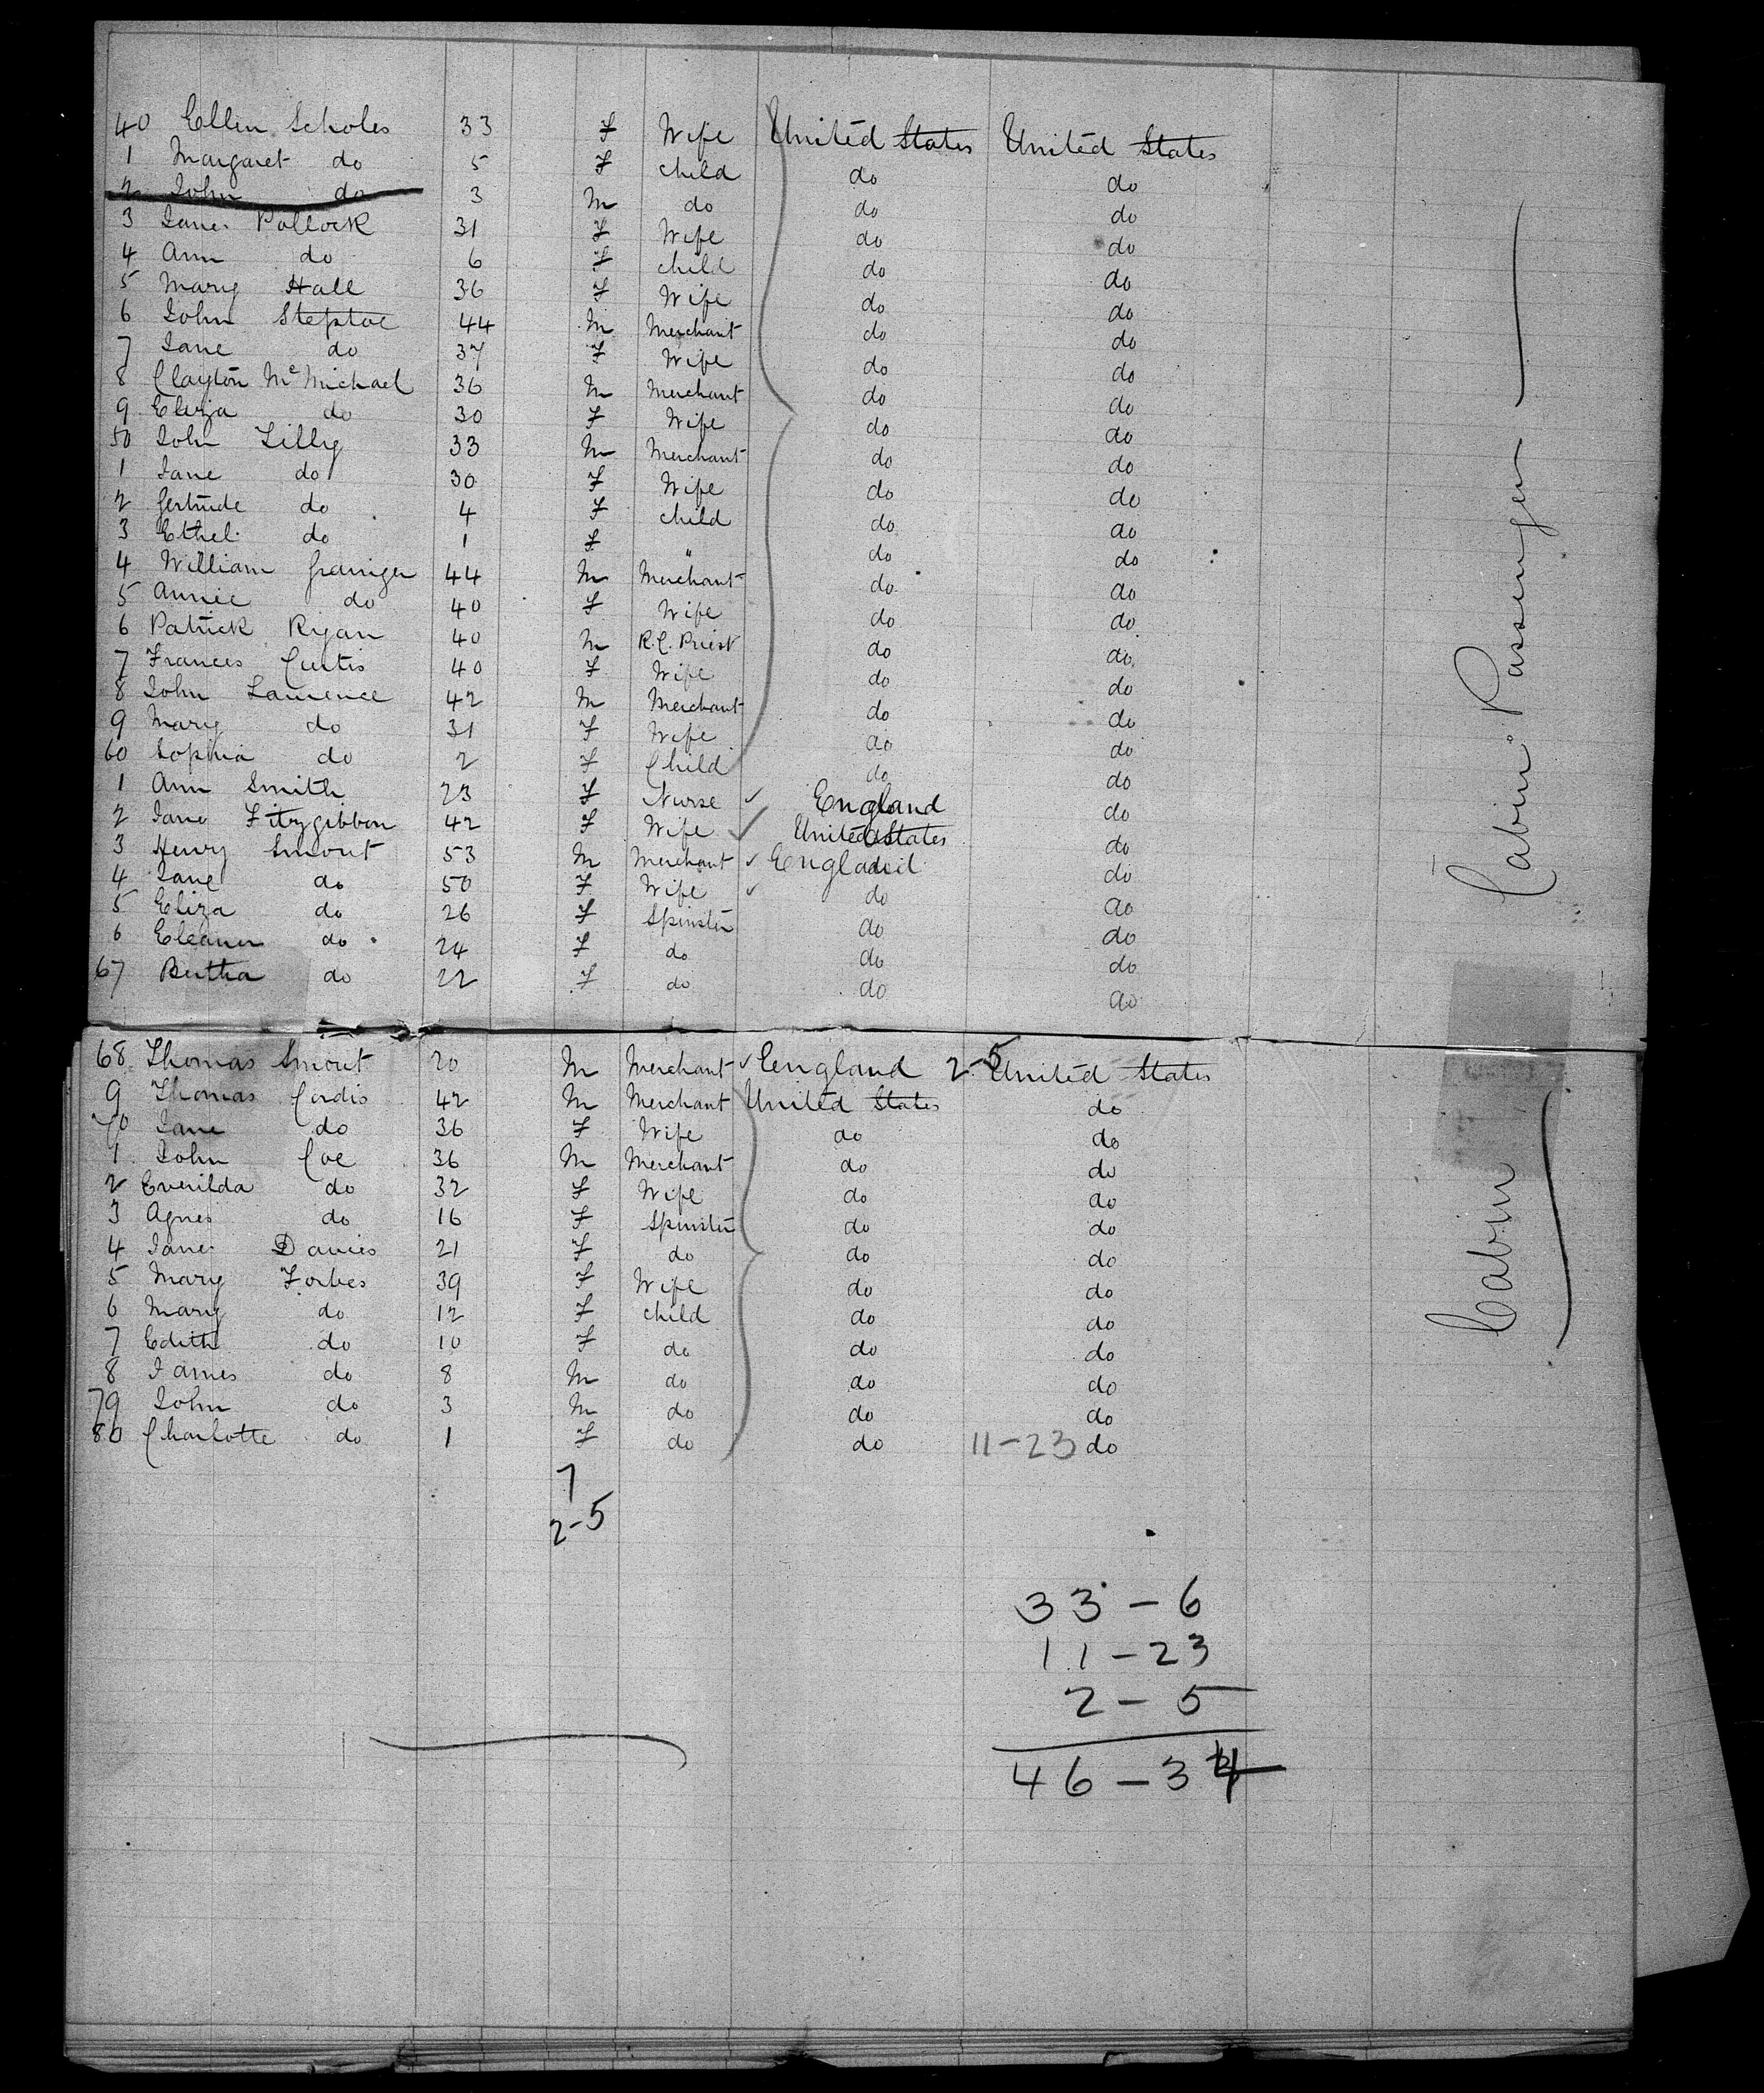 40 Ellen Scholes 33 F Wife United States United States
1 Margaret do 5 F child do do
2 John do 3 M do do do
3 Jane Pollock 31 F Wife do do
4 Ann do 6 F child do do
5 Mary Hall 36 F Wife do do
6 John Steptoe 44 M Merchant do do
7 Jane do 37 F Wife do do
8 Clayton McMichael 36 M Merchant do do
9 Eliza do 30 F Wife do do
50 John Lilly 33 M Merchant do do
1 Jane do 30 F Wife do do
2 Gertrude do 4 F child do do
3 Ethel do 1 F " do do
4 William Grainger 44 M Merchant do do
5 Annie do 40 F Wife do do
6 Patrick Ryan 40 M R.C. Priest do do
7 Frances Curtis 40 F Wife do do
8 John Lawrence 42 M Merchant do do
9 Mary do 31 F Wife do do
60 Sophia do 2 F Child do do
1 Ann Smith 23 F Nurse England do
2 Jane Fitzgibbon 42 F Wife United States do
3 Henry Smout 53 M Merchant England do
4 Jane do 50 F Wife do do
5 Eliza do 26 F Spinster do do
6 Eleanor do 24 F do do do
67 Bertha do 22 F do do do
Cabin Passenger
68 Thomas Smout 20 M Merchant England 2-5 United States
9 Thomas Cordis 42 M Merchant United States do
70 Jane do 36 F Wife do do
1 John Coe 36 M Merchant do do
2 Everilda do 32 F Wife do do
3 Agnes do 16 F Spinster do do
4 Jane Davies 21 F do do do
5 Mary Forbes 39 F Wife do do
6 Mary do 12 F child do do
7 Edith do 10 F do do do
8 James do 8 M do do do
79 John do 3 M do do do
80 Charlotte do 1 F do do 11-23 do
Cabin
7
2-5
33-6
11-23
2-5
46-34